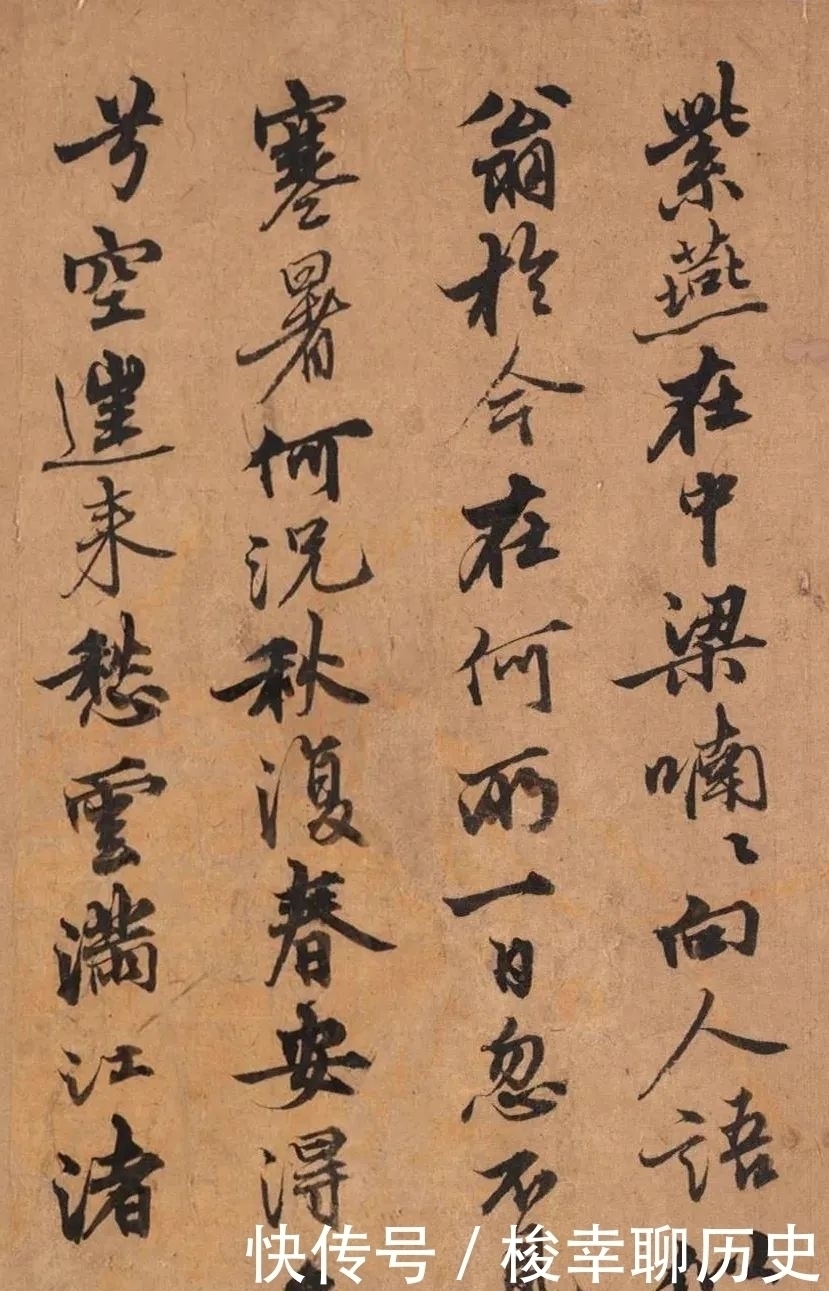 紫燕在中梁喃〻向人語
翁於今在何所一日忽不
寒暑何況秋復春安得
兮空来愁雲滿江渚
快传号 / 梭幸聊历史